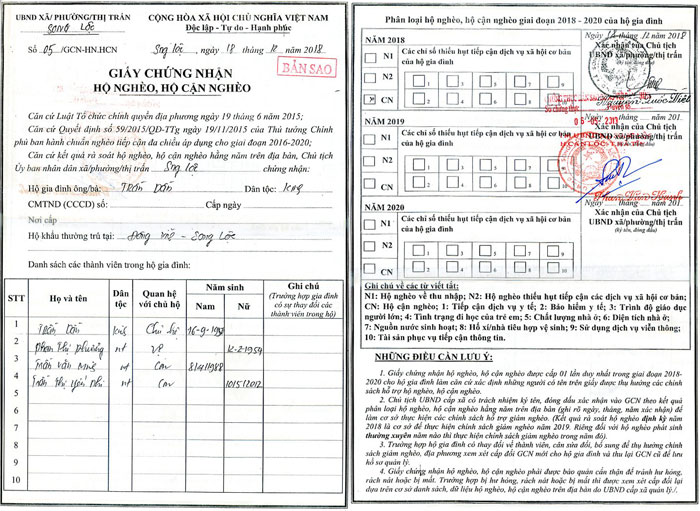 UBND XÃ/ PHƯỜNG/THỊ TRẤN
SONG LỘC
CỘNG HÒA XÃ HỘI CHỦ NGHĨA VIỆT NAM
Độc lập - Tự do - Hạnh phúc
Số 05 /GCN-HN.HCN
Song Lộc, ngày 18 tháng 12 năm 2018
BẢN SAO
GIẤY CHỨNG NHẬN
HỘ NGHÈO, HỘ CẬN NGHÈO
Căn cứ Luật Tổ chức chính quyền địa phương ngày 19 tháng 6 năm 2015;
Căn cứ Quyết định số 59/2015/QĐ-TTg ngày 19/11/2015 của Thủ tướng Chính
phủ ban hành chuẩn nghèo tiếp cận đa chiều áp dụng cho giai đoạn 2016-2020;
Căn cứ kết quả rà soát hộ nghèo, hộ cận nghèo hằng năm trên địa bàn, Chủ tịch
Ủy ban nhân dân xã/phường/thị trấn Song Lộc chứng nhận:
Hộ gia đình ông/bà: Trần Dần Dân tộc: Kinh
CMTND (CCCD) số: Cấp ngày
Nơi cấp
Hộ khẩu thường trú tại: - Song Lộc
Danh sách các thành viên trong hộ gia đình:
STT Họ và tên Dân tộc Quan hệ với chủ hộ Năm sinh Nam Nữ Ghi chú
(Trường hợp gia đình có sự thay đổi các thành viên trong hộ)
1 Trần Dần Chủ hộ
2 Phan Thị Phương nt Vợ 12-2-1954
3 Trần Văn nt Con 8/4/1988
4 Trần Thị Yến Nhi nt Con 10/5/2012
5
6
7
8
9
10
Phân loại hộ nghèo, hộ cận nghèo giai đoạn 2018 - 2020 của hộ gia đình
NĂM 2018
N1
N2
CN
Các chỉ số thiếu hụt tiếp cận dịch vụ xã hội cơ bản
của hộ gia đình
1 2 3 4 5
6 7 8 9 10
Xác nhận của Chủ tịch
UBND xã/phường/thị trấn
NĂM 2019
N1
N2
CN
Các chỉ số thiếu hụt tiếp cận dịch vụ xã hội cơ bản
của hộ gia đình
1 2 3 4 5
6 7 8 9 10
NĂM 2020
N1
N2
CN
Các chỉ số thiếu hụt tiếp cận dịch vụ xã hội cơ bản
của hộ gia đình
1 2 3 4 5
6 7 8 9 10
tháng năm 201
Xác nhận của Chủ tịch
UBND xã/phường/thị trấn
(ký tên, đóng dấu)
Ghi chú về các từ viết tắt:
N1: Hộ nghèo về thu nhập; N2: Hộ nghèo thiếu hụt tiếp cận các dịch vụ xã hội cơ bản;
CN: Hộ cận nghèo; 1: Tiếp cận dịch vụ y tế; 2: Bảo hiểm y tế; 3: Trình độ giáo dục
người lớn; 4: Tình trạng đi học của trẻ em; 5: Chất lượng nhà ở; 6: Diện tích nhà ở;
7: Nguồn nước sinh hoạt; 8: Hố xí/nhà tiêu hợp vệ sinh; 9: Sử dụng dịch vụ viễn thông;
10: Tài sản phục vụ tiếp cận thông tin.
NHỮNG ĐIỀU CẦN LƯU Ý:
1. Giấy chứng nhận hộ nghèo, hộ cận nghèo được cấp 01 lần duy nhất trong giai đoạn 2018-
2020 cho hộ gia đình làm căn cứ xác định những người có tên trên giấy được thụ hưởng các chính
sách hỗ trợ hộ nghèo, hộ cận nghèo.
2. Chủ tịch UBND cấp xã có trách nhiệm ký tên, đóng dấu xác nhận vào GCN theo kết quả
phân loại hộ nghèo, hộ cận nghèo hằng năm trên địa bàn (ghi rõ ngày, tháng, năm xác nhận) để
làm cơ sở thực hiện các chính sách hỗ trợ giảm nghèo. (Kết quả rà soát hộ nghèo định kỳ năm
2018 là cơ sở để thực hiện chính sách giảm nghèo năm 2019. Riêng đối với hộ nghèo phát sinh
thường xuyên năm nào thì thực hiện chính sách giảm nghèo trong năm đó).
3. Trường hợp hộ gia đình có thay đổi về thành viên, cần sửa đổi, bổ sung để thụ hưởng chính
sách giảm nghèo, địa phương xem xét cấp đổi GCN mới cho hộ gia đình và thu lại GCN cũ để lưu
hồ sơ quản lý.
4. Giấy chứng nhận hộ nghèo, hộ cận nghèo phải được bảo quản cẩn thận để tránh hư hỏng,
rách nát hoặc bị mất. Trường hợp bị hư hỏng, rách nát hoặc bị mất thì được xem xét cấp đổi lại
dựa trên cơ sở danh sách, dữ liệu hộ nghèo, hộ cận nghèo trên địa bàn do UBND cấp xã quản lý./.